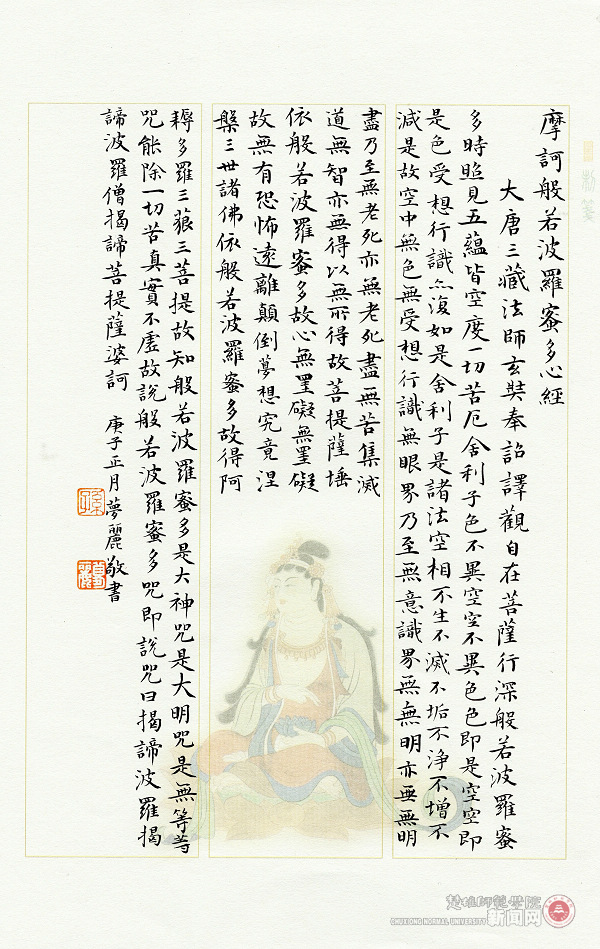 摩訶般若波羅蜜多心經
大唐三藏法師玄奘奉詔譯觀自在菩薩行深般若波羅蜜
多時照見五蘊皆空度一切苦厄舍利子色不異空空不異色色即是空空即
是色受想行識亦復如是舍利子是諸法空相不生不滅不垢不淨不增不
減是故空中無色無受想行識無眼界乃至無意識界無無明亦無無明
盡乃至無老死亦無老死盡無苦集滅
道無智亦無得以無所得故菩提薩埵
依般若波羅蜜多故心無罣礙無罣礙
故無有恐怖遠離顛倒夢想究竟涅
槃三世諸佛依般若波羅蜜多故得阿
耨多羅三藐三菩提故知般若波羅蜜多是大神咒是大明咒是無等等
咒能除一切苦真實不虛故說般若波羅蜜多咒即說咒曰揭諦波羅揭
諦波羅僧揭諦菩提薩婆訶 庚子正月夢麗敬書
楚雄師範學院
CHUXIONG NORMAL UNIVERSITY
新闻网